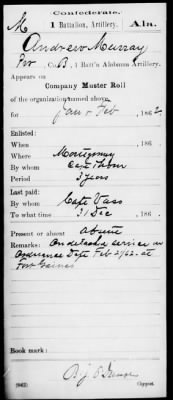 Confederate.
M 1 Battalion, Artillery. Ala.
Andrew Murray
Pvt, Co. B, 1 Batt'n Alabama Artillery.
Appears on
Company Muster Roll
of the organization named above,
for Jan & Feb, 1862.
Enlisted:
When, 186 .
Where Montgomery
By whom Capt
Period 3 years
Last paid:
By whom Capt Vass
To what time 31 Dec, 186 .
Present or absent absent
Remarks: On detached service in
Ordnance Dept Feb 1862. at
Fort Gaines
Book mark:
(642) Copyist.